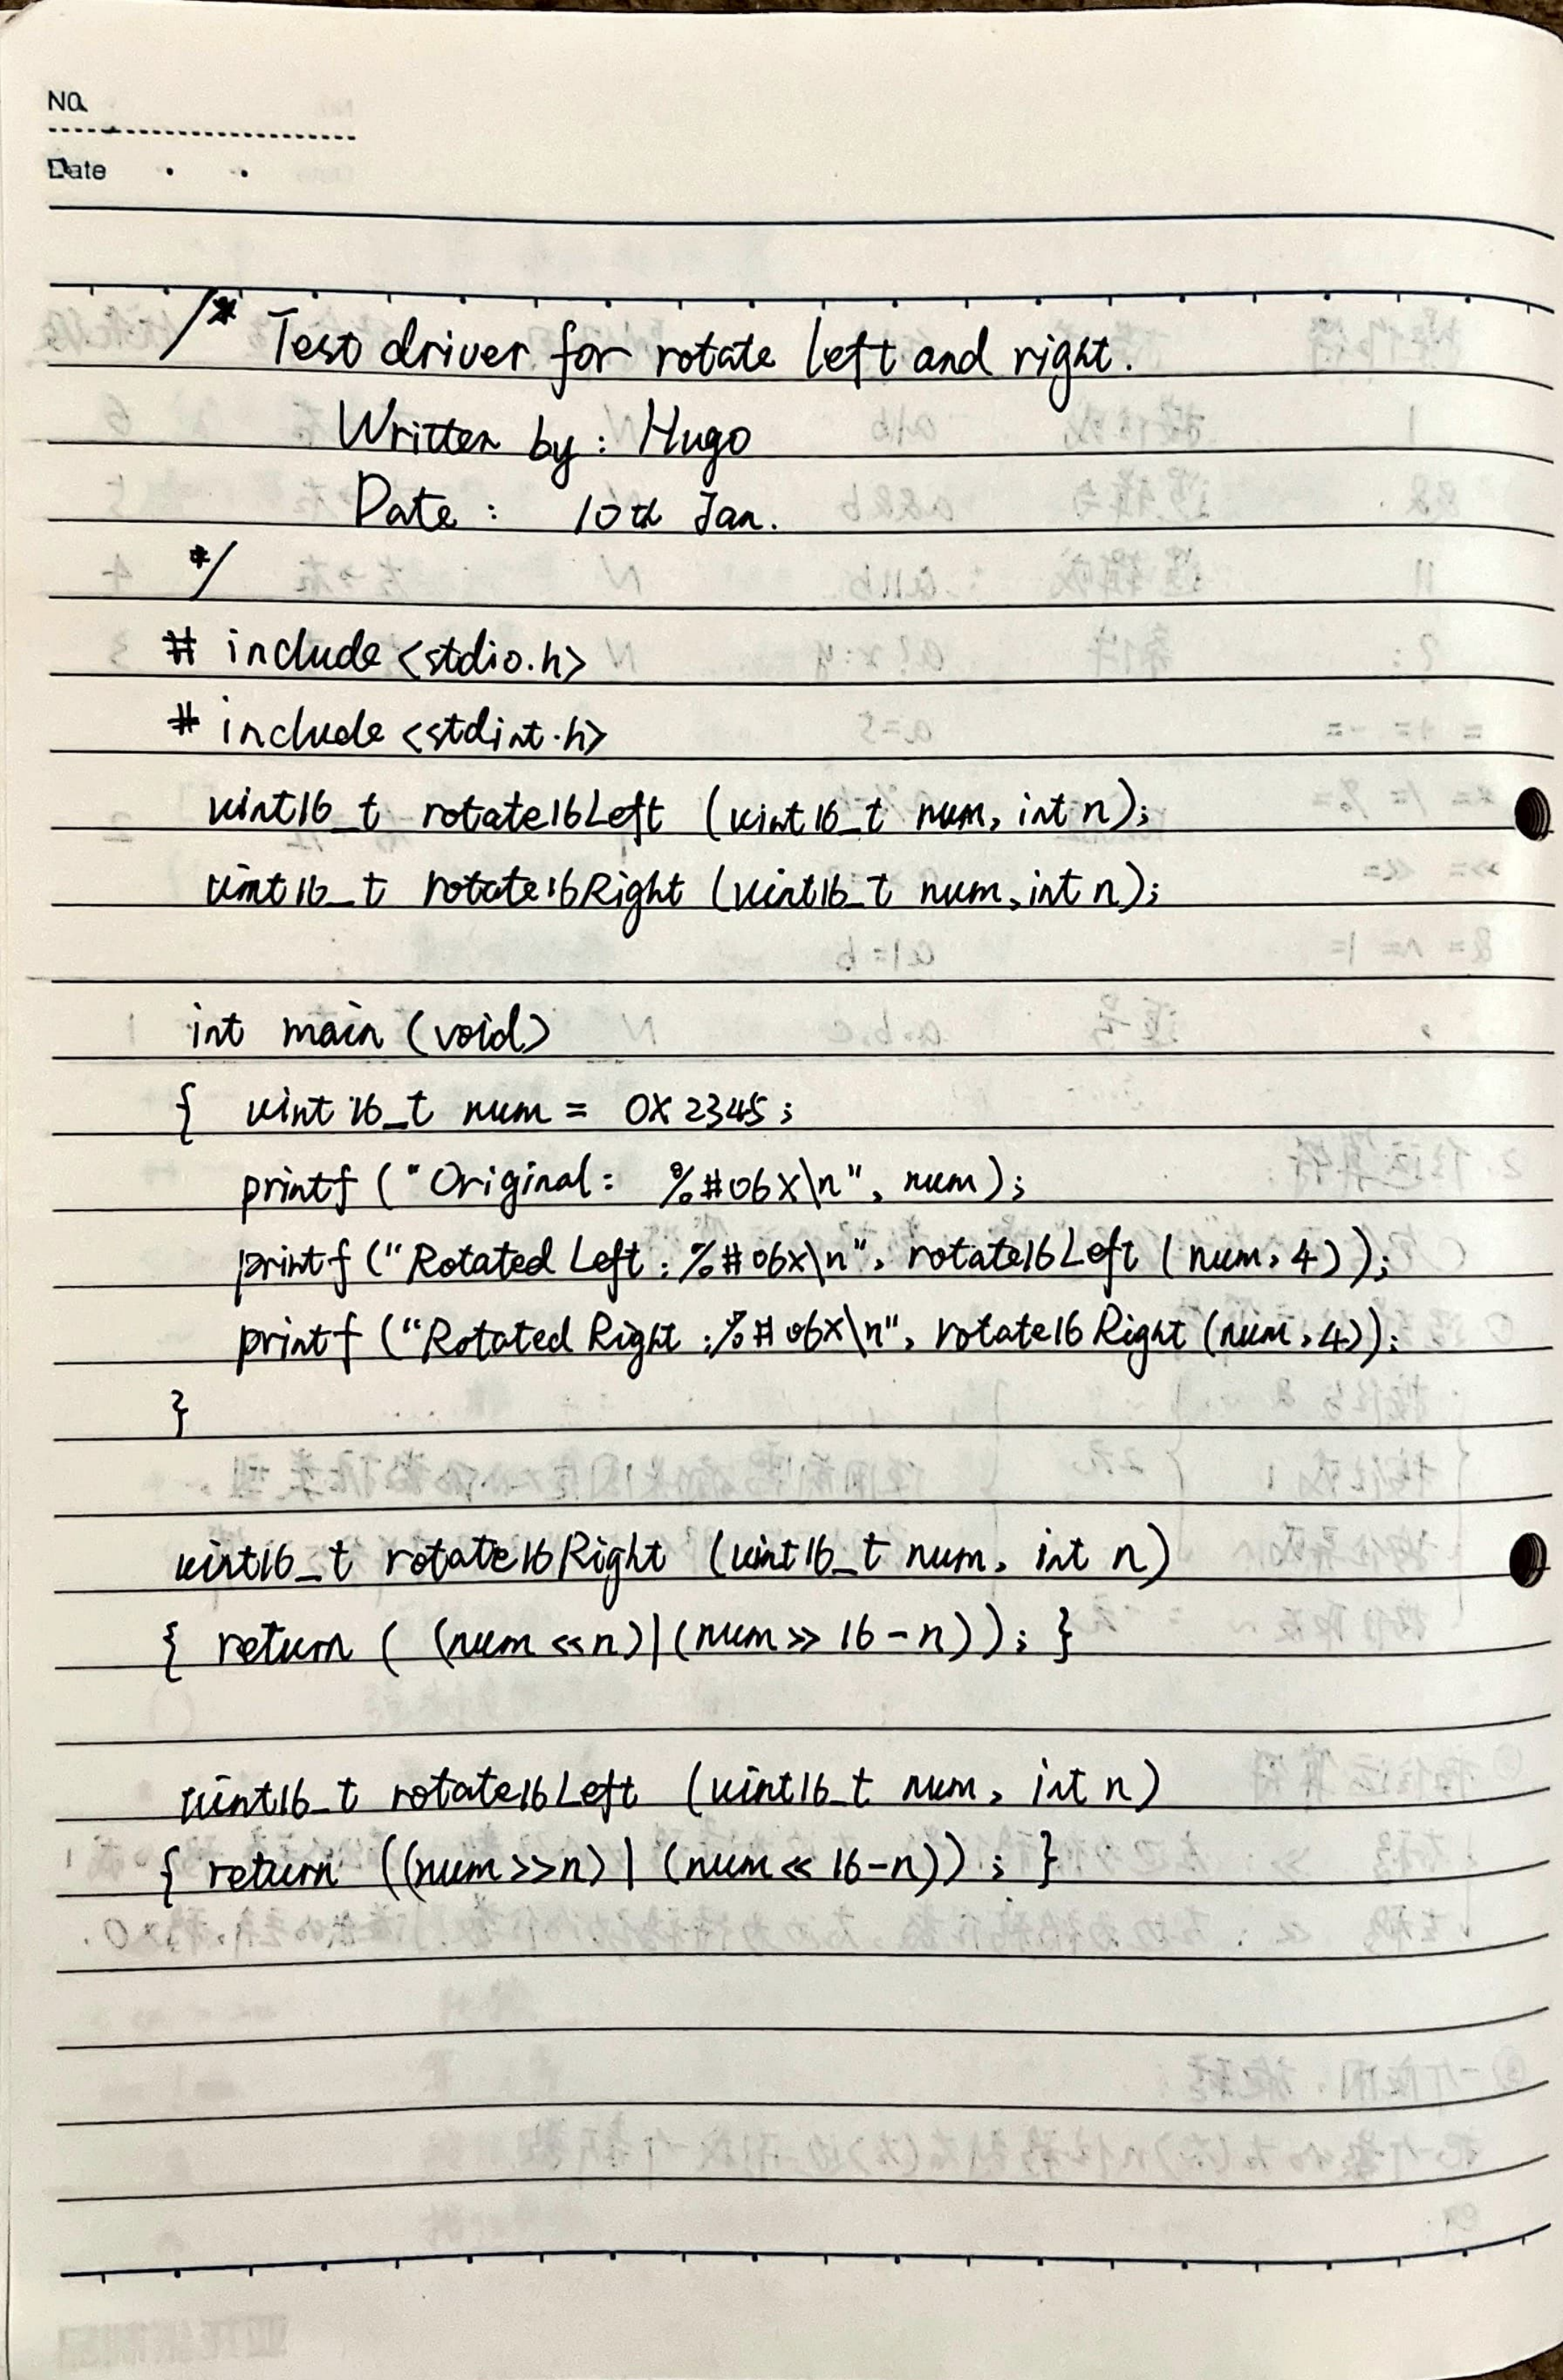 No.
Date
/* Test driver for rotate left and right.
Written by: Hugo
Date: 10th Jan.
*/
# include <stdio.h>
# include <stdint.h>
uint16_t rotate16Left (uint16_t num, int n);
uint16_t rotate16Right (uint16_t num, int n);
int main (void)
{ uint16_t num = 0X2345;
printf ("Original: %#06X\n", num);
printf ("Rotated Left: %#06x\n", rotate16Left (num, 4));
printf ("Rotated Right: %#06X\n", rotate16Right (num, 4));
}
uint16_t rotate16Right (uint16_t num, int n)
{ return ( (num <<n)|(num >> 16-n)); }
uint16_t rotate16Left (uint16_t num, int n)
{ return ((num >>n) | (num << 16-n)); }